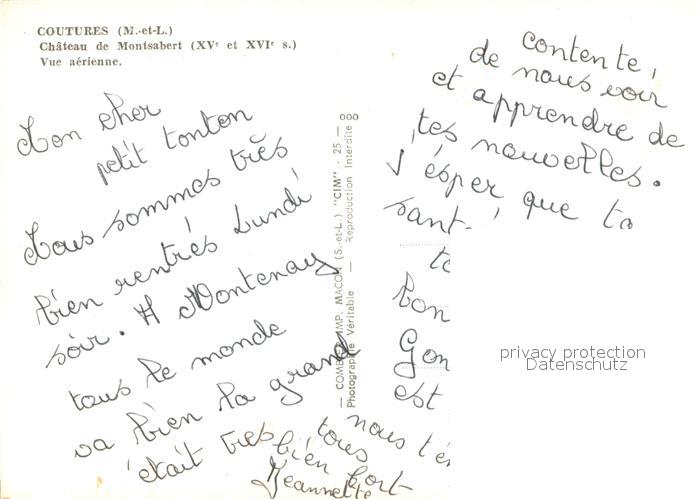 COUTURES (M.-et-L.)
Château de Montsabert (XVe et XVIe s.)
Vue aérienne.
Mon cher
petit tonton
Nous sommes très
bien rentrés Lundi
soir. A Montenay
tous le monde
va bien la grand
était tres
contente,
de nous voir
et apprendre de
tes nouvelles.
J'ésper que ta
sant
ta
bon
Gon
est
nous t'e
tous
bien fort
Jeannette
— COMBIER IMP. MACON (S.-et-L.) "CIM" - 25 — 000
Photographie Véritable — Reproduction Interdite
privacy protection
Datenschutz